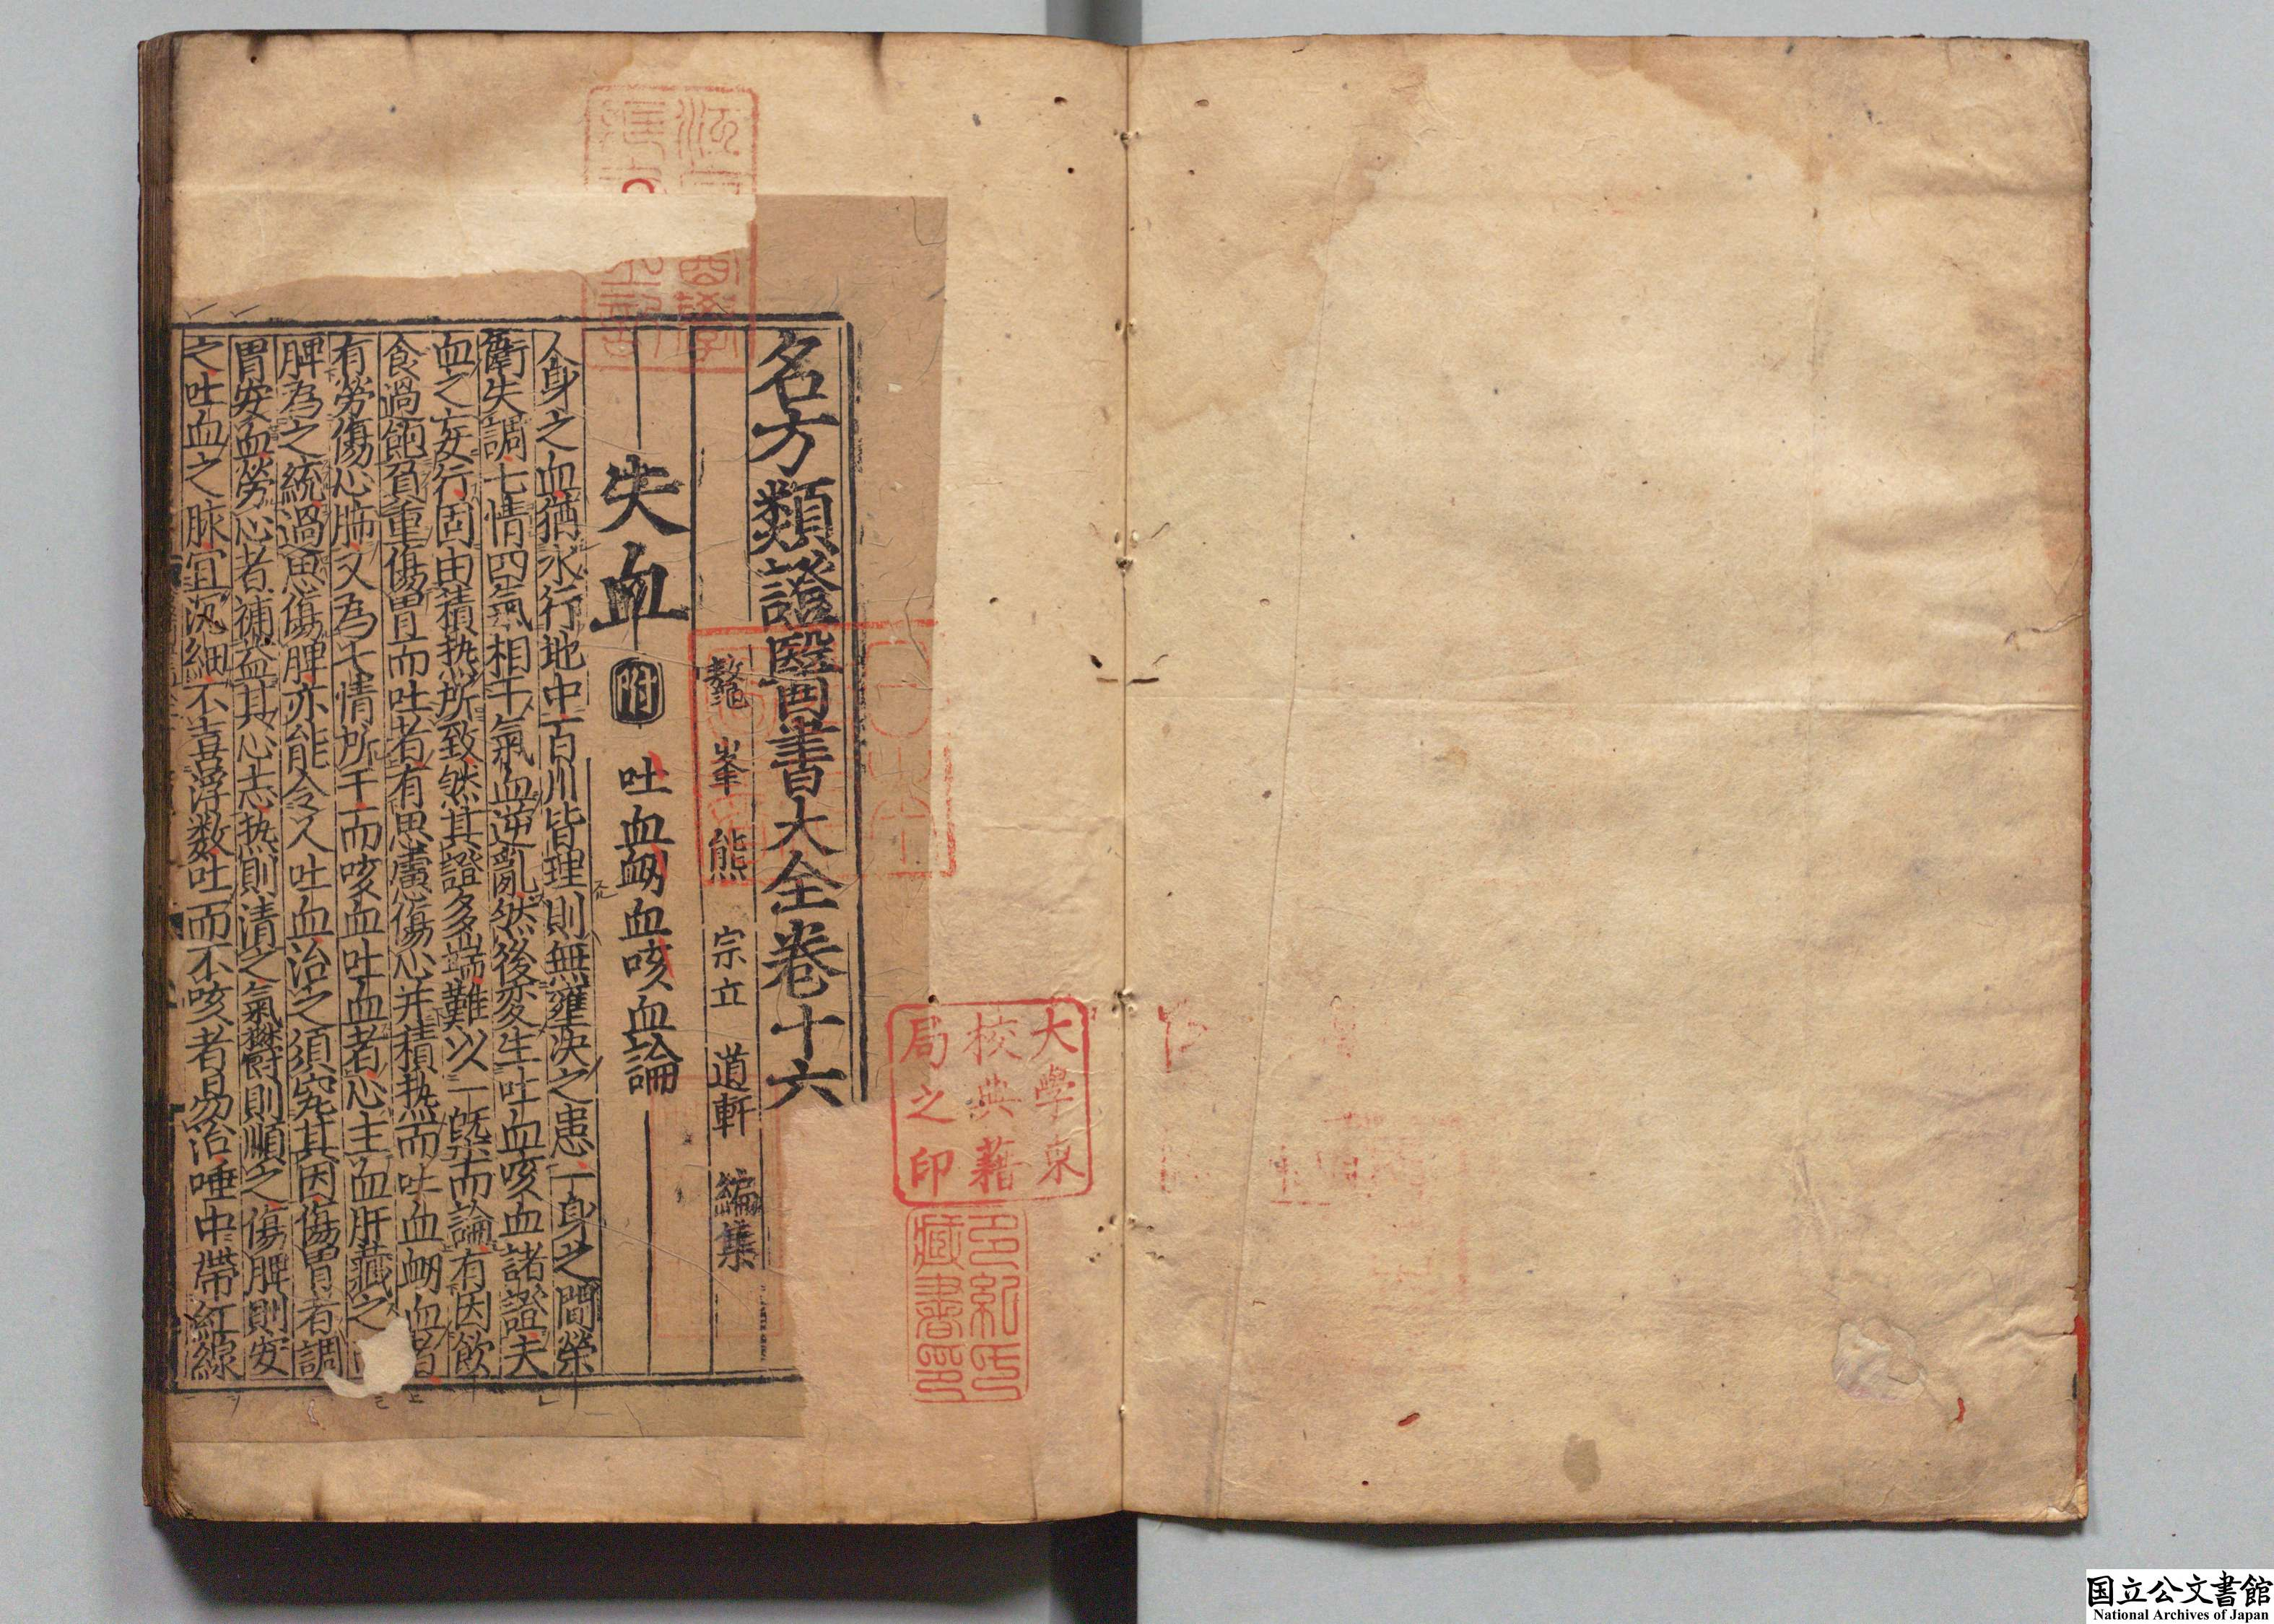 名方類證醫書大全卷十六
鰲峯熊 宗立 道軒 編集
失血 附 吐血衂血咳血論
人身之血猶水行地中百川皆理則無壅决之患一身之間榮
衛失調七情四氣相干氣血逆亂然後変生吐血咳血諸證夫
血之妄行固由積热所致然其證多端難以一槩而論有因飲
食過飽負重傷胃而吐者有思慮傷心并積热而吐血衂血者
有勞傷心肺又為七情所干而咳血吐血者心主血肝藏之
脾為之統過思傷脾亦能令人吐血治之須究其因傷胃者調
胃安血勞心者補益其心志热則清之氣欝則順之傷脾則安
之吐血之脉宜沉細不喜浮数吐而不咳者易治唾中帶紅線
大學東
校典藉
局之印
国立公文書館
National Archives of Japan